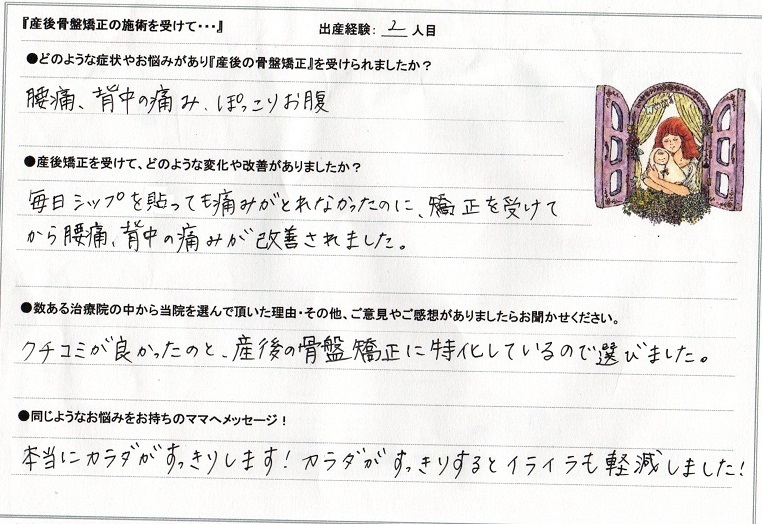 『産後骨盤矯正の施術を受けて・・・』 出産経験: 2 人目
●どのような症状やお悩みがあり『産後の骨盤矯正』を受けられましたか?
腰痛、背中の痛み、ぽっこりお腹
●産後矯正を受けて、どのような変化や改善がありましたか?
毎日シップを貼っても痛みがとれなかったのに、矯正を受けて
から腰痛、背中の痛みが改善されました。
●数ある治療院の中から当院を選んで頂いた理由・その他、ご意見やご感想がありましたらお聞かせください。
クチコミが良かったのと、産後の骨盤矯正に特化しているので選びました。
●同じようなお悩みをお持ちのママへメッセージ!
本当にカラダがすっきりします!カラダがすっきりするとイライラも軽減しました!